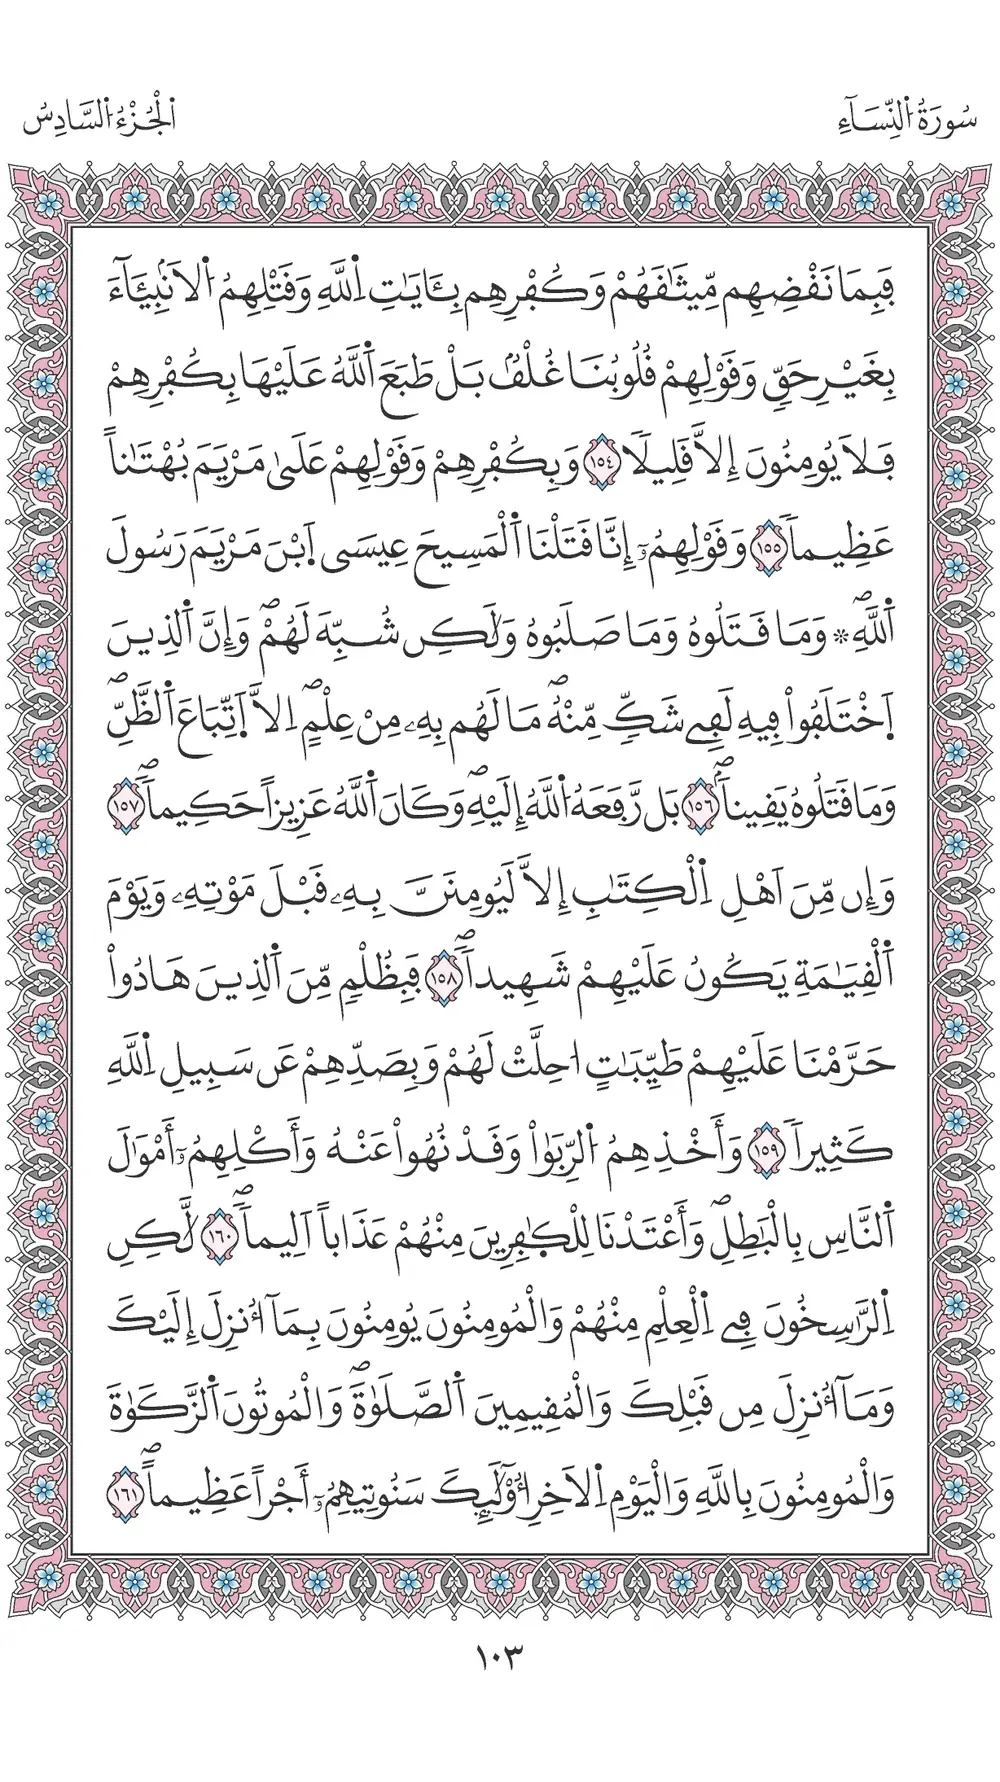 سُورَةُ اُ۬لنِّسَآءِ
اَ۬لْجُزْءُ اُ۬لسَّادِسُ
فَبِمَا نَقْضِهِم مِّيثَٰقَهُمْ وَكُفْرِهِم بِـَٔايَٰتِ اِ۬للَّهِ وَقَتْلِهِمُ اُ۬لَانۢبِيَآءَ
بِغَيْرِ حَقّٖ وَقَوْلِهِمْ قُلُوبُنَا غُلْفُۢ بَلْ طَبَعَ اَ۬للَّهُ عَلَيْهَا بِكُفْرِهِمْ
فَلَا يُومِنُونَ إِلَّا قَلِيلاٗ ١٥٤ وَبِكُفْرِهِمْ وَقَوْلِهِمْ عَلَىٰ مَرْيَمَ بُهْتَٰناً
عَظِيماٗ ١٥٥ وَقَوْلِهِمُۥٓ إِنَّا قَتَلْنَا اَ۬لْمَسِيحَ عِيسَى اَ۪بْنَ مَرْيَمَ رَسُولَ
اَ۬للَّهِۖ * وَمَا قَتَلُوهُ وَمَا صَلَبُوهُ وَلَٰكِن شُبِّهَ لَهُمْۖ وَإِنَّ اَ۬لذِينَ
اَ۪خْتَلَفُواْ فِيهِ لَفِے شَكّٖ مِّنْهُۖ مَا لَهُم بِهِۦ مِنْ عِلْمٍۖ اِلَّا اَ۪تِّبَاعَ اَ۬لظَّنِّۖ
وَمَا قَتَلُوهُ يَقِيناَۢۖ ١٥٦ بَل رَّفَعَهُ اُ۬للَّهُ إِلَيْهِۖ وَكَانَ اَ۬للَّهُ عَزِيزاً حَكِيماٗۖ ١٥٧
وَإِن مِّنَ اَهْلِ اِ۬لْكِتَٰبِ إِلَّا لَيُومِنَنَّ بِهِۦ قَبْلَ مَوْتِهِۦ وَيَوْمَ
اَ۬لْقِيَٰمَةِ يَكُونُ عَلَيْهِمْ شَهِيداٗۖ ١٥٨ فَبِظُلْمٖ مِّنَ اَ۬لذِينَ هَادُواْ
حَرَّمْنَا عَلَيْهِمْ طَيِّبَٰتٍ ا۟حِلَّتْ لَهُمْ وَبِصَدِّهِمْ عَن سَبِيلِ اِ۬للَّهِ
كَثِيراٗ ١٥٩ وَأَخْذِهِمُ اُ۬لرِّبَوٰاْ وَقَدْ نُهُواْ عَنْهُ وَأَكْلِهِمُۥٓ أَمْوَٰلَ
اَ۬لنَّاسِ بِالْبَٰطِلِۖ وَأَعْتَدْنَا لِلْكَٰفِرِينَ مِنْهُمْ عَذَاباً اَلِيماٗۖ ١٦٠ لَّٰكِنِ
اِ۬لرَّٰسِخُونَ فِے اِ۬لْعِلْمِ مِنْهُمْ وَالْمُومِنُونَ يُومِنُونَ بِمَآ أُنزِلَ إِلَيْكَ
وَمَآ أُنزِلَ مِن قَبْلِكَ وَالْمُقِيمِينَ اَ۬لصَّلَوٰةَۖ وَالْمُوتُونَ اَ۬لزَّكَوٰةَ
وَالْمُومِنُونَ بِاللَّهِ وَالْيَوْمِ اِ۬لَاخِرِ أُوْلَٰٓئِكَ سَنُوتِيهِمُۥٓ أَجْراً عَظِيماًۖ ١٦١
١٠٣